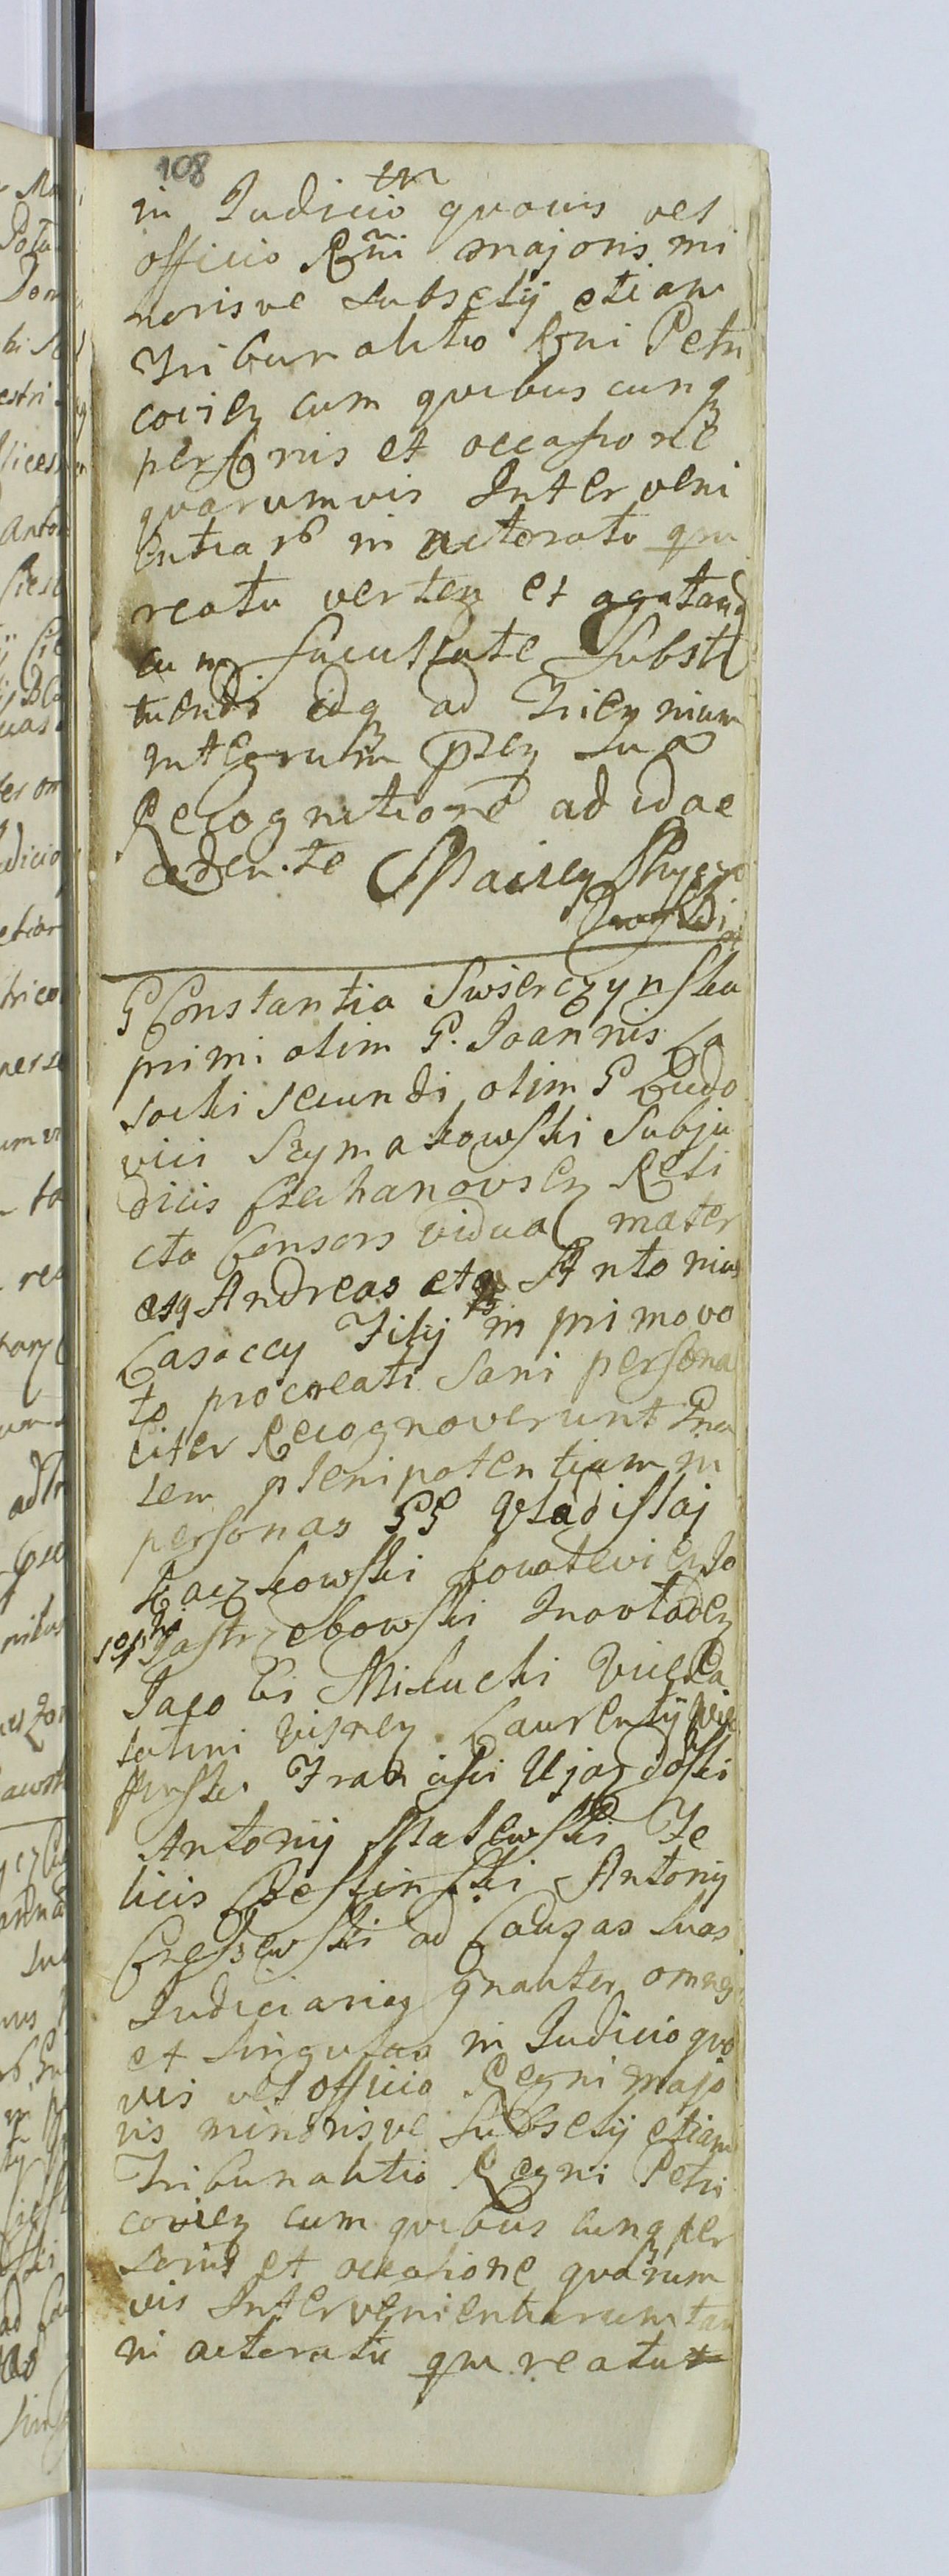 108
in Judicio quovis vel
officio Rñi majoris mi
norisve subselij etiam
Tribunalitio Rni Petri
covien cum quibuscunq
personis et occasione
quarumvis Interveni
entiarũ in actoratu qm
reatu verten et agitand
cum facultate substi
tuendi idq ad Triennium
integrum psen sua
Recognitione ad id ac
cedente Maciey

G Constantia Swierczynska
primi olim G. Joannis La
socki secundi olim G Ludo
vici Szymakowski Subju
dicis Czechanovien Reli
cta Consors vidua mater
esq Andreas etq Antonius
Lasoccy Filij in primo vo
to procreati sani persona
liter Recognoverunt Pnn
tem plenipotentiam in
personas GG Vladislaj
Łaczkowski Jo
seph Jastrzebowski Inovladen
Jacobi Milucki Vicepa
latini Visnen Laurentij Wie
Francisci Ujazdoski
Antonij Malewski Fe
licis Antonij
ad Causas suas
Judiciarias gnaliter omnes
et singulas in Judicio quo
vis vel officio Regni majo
ris minorisve subselij etiam
Tribunalitio Regni Petri
covien cum quibuscunq per
sonis et occasione quarum
vis Intervenientiarum tam
in actoratu qm reatu